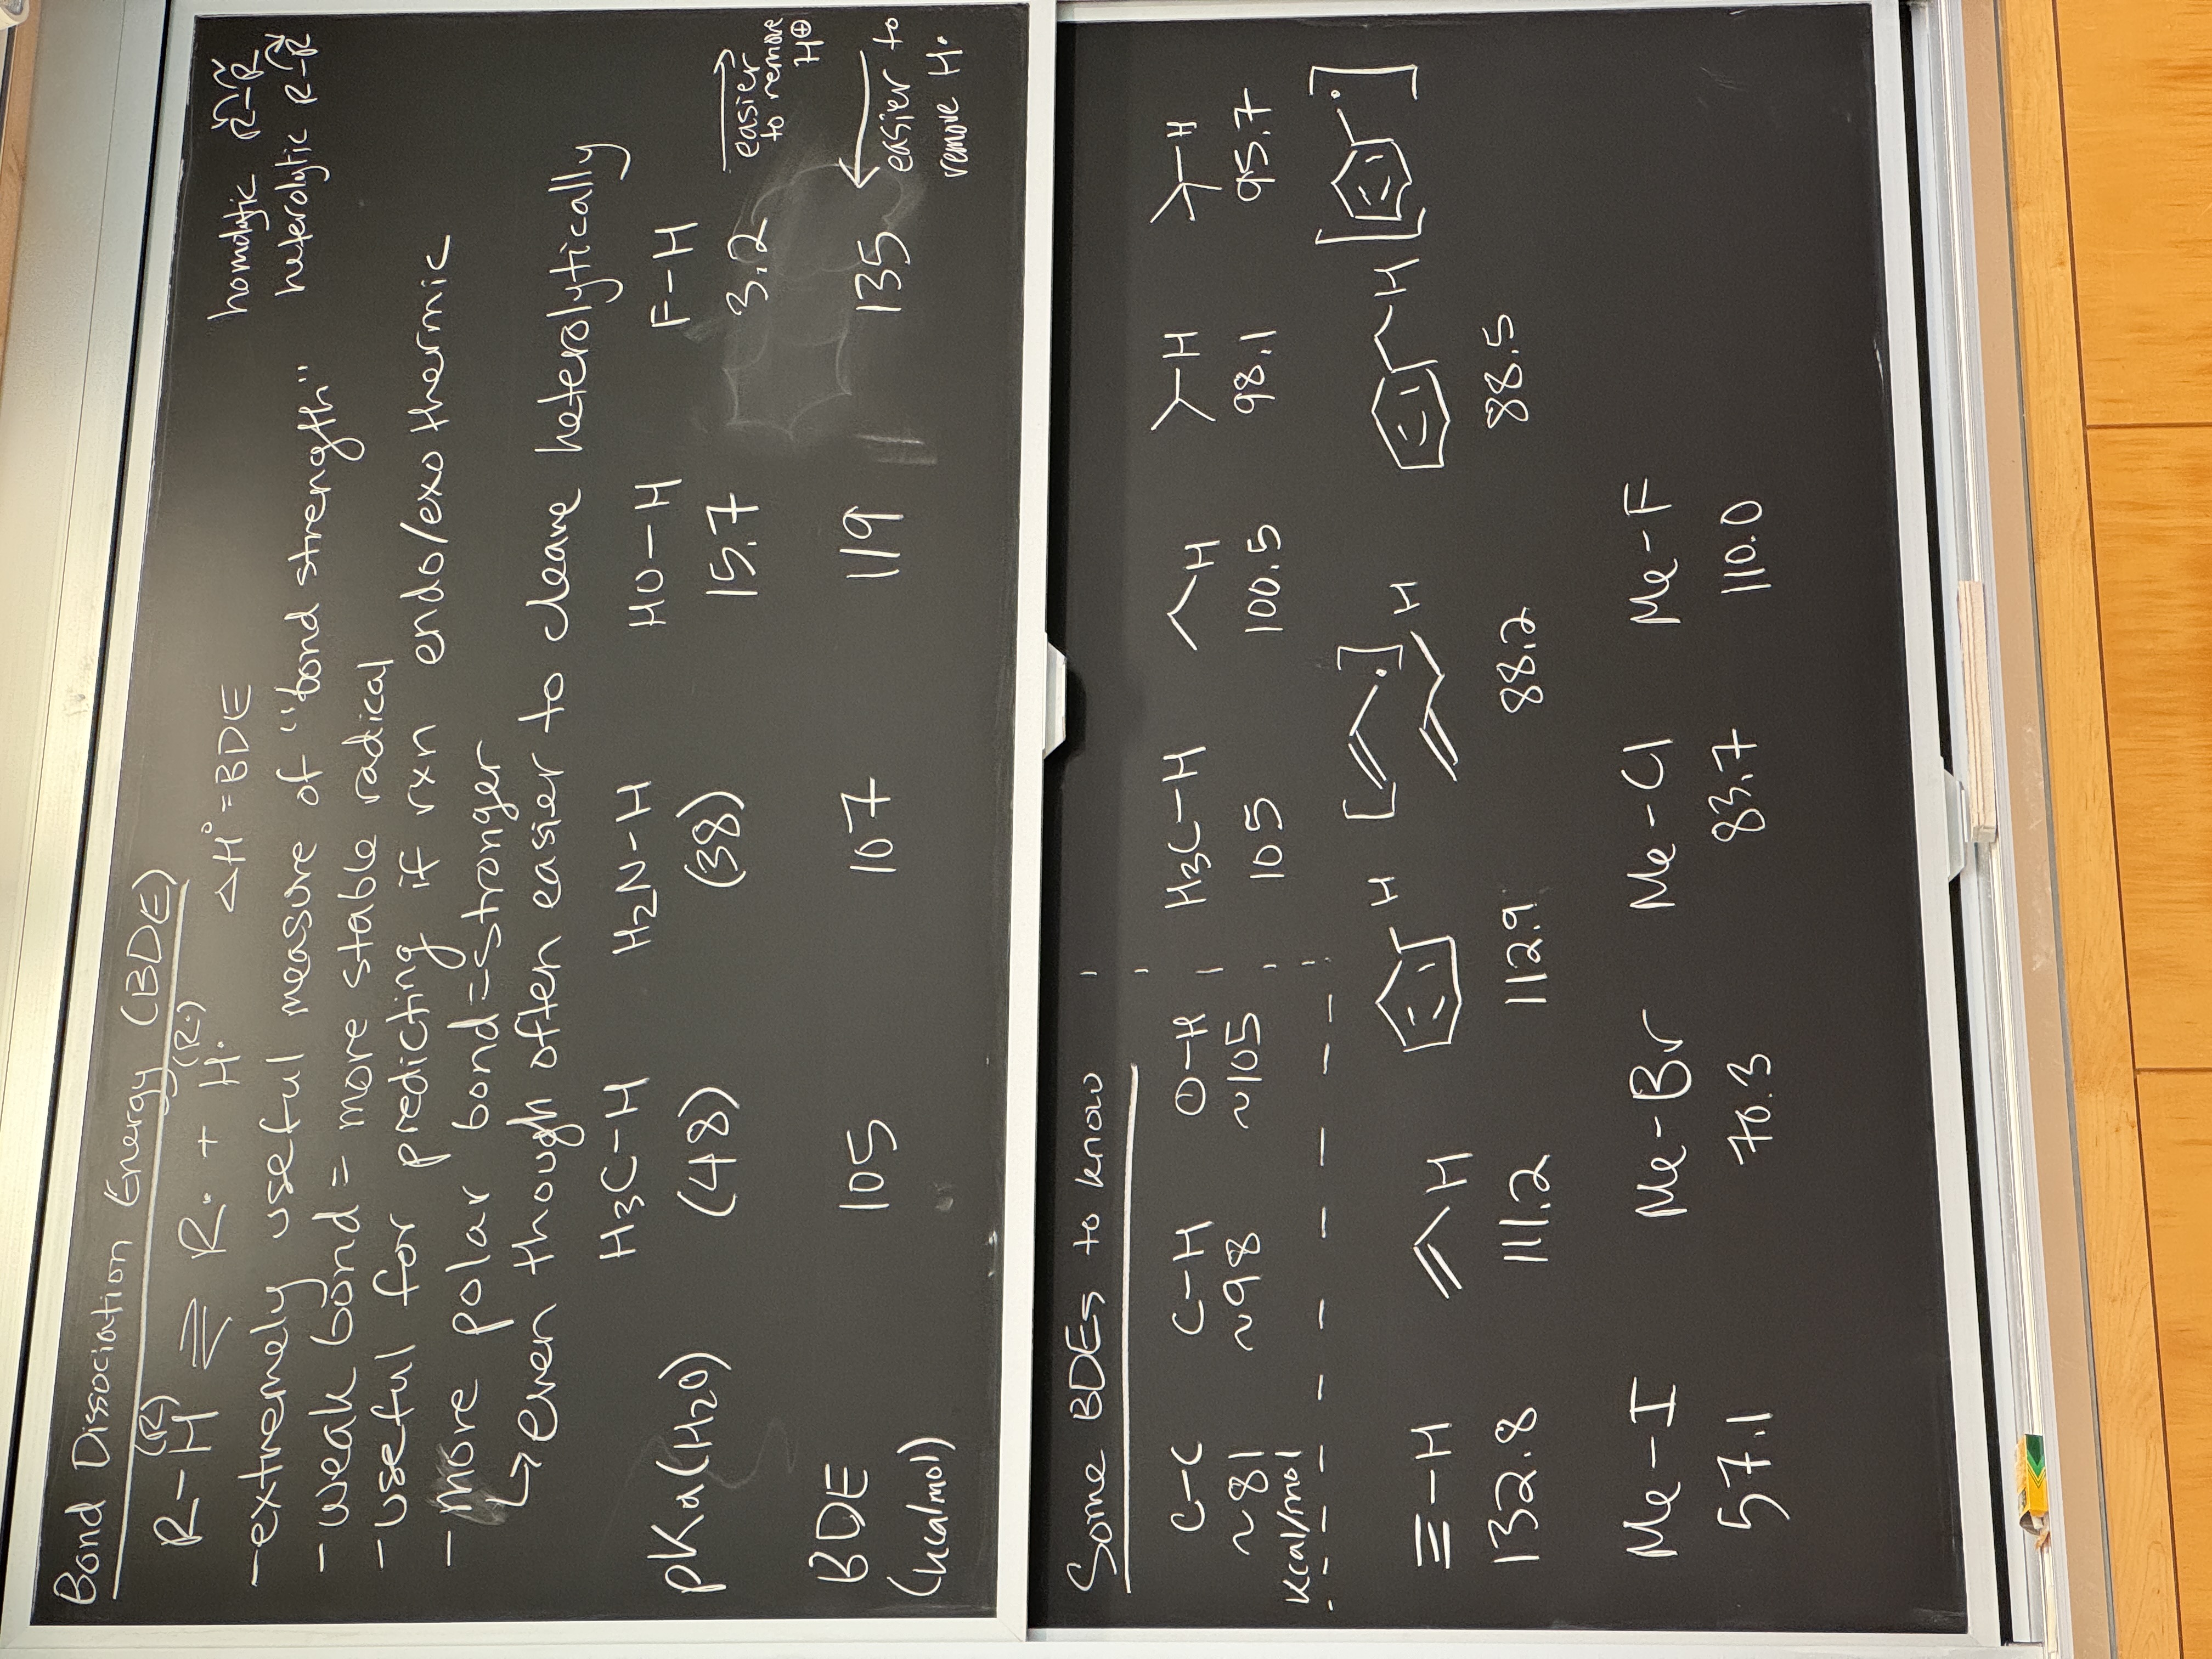 Bond Dissociation Energy (BDE)
R-H (R) ⇌ R· + H· (R·) ΔH° = BDE
homolytic R-R
heterolytic R-R
-extremely useful measure of "bond strength"
-weak bond = more stable radical
-useful for predicting if rxn endo/exo thermic
-more polar bond=stronger
↳ even though often easier to cleave heterolytically
H3C-H H2N-H HO-H F-H
pKa(H2O) (48) (38) 15.7 3.2
→ easier to remove H⊕
BDE (kcalmol) 105 107 119 135
← easier to remove H·
Some BDEs to know
C-C C-H O-H
~81 ~98 ~105
kcal/mol
H3C-H H -H -H
105 100.5 98.1 95.7
≡-H H H [ · ] H H [ · ]
132.8 111.2 112.9 88.2 88.5
Me-I Me-Br Me-Cl Me-F
57.1 70.3 83.7 110.0